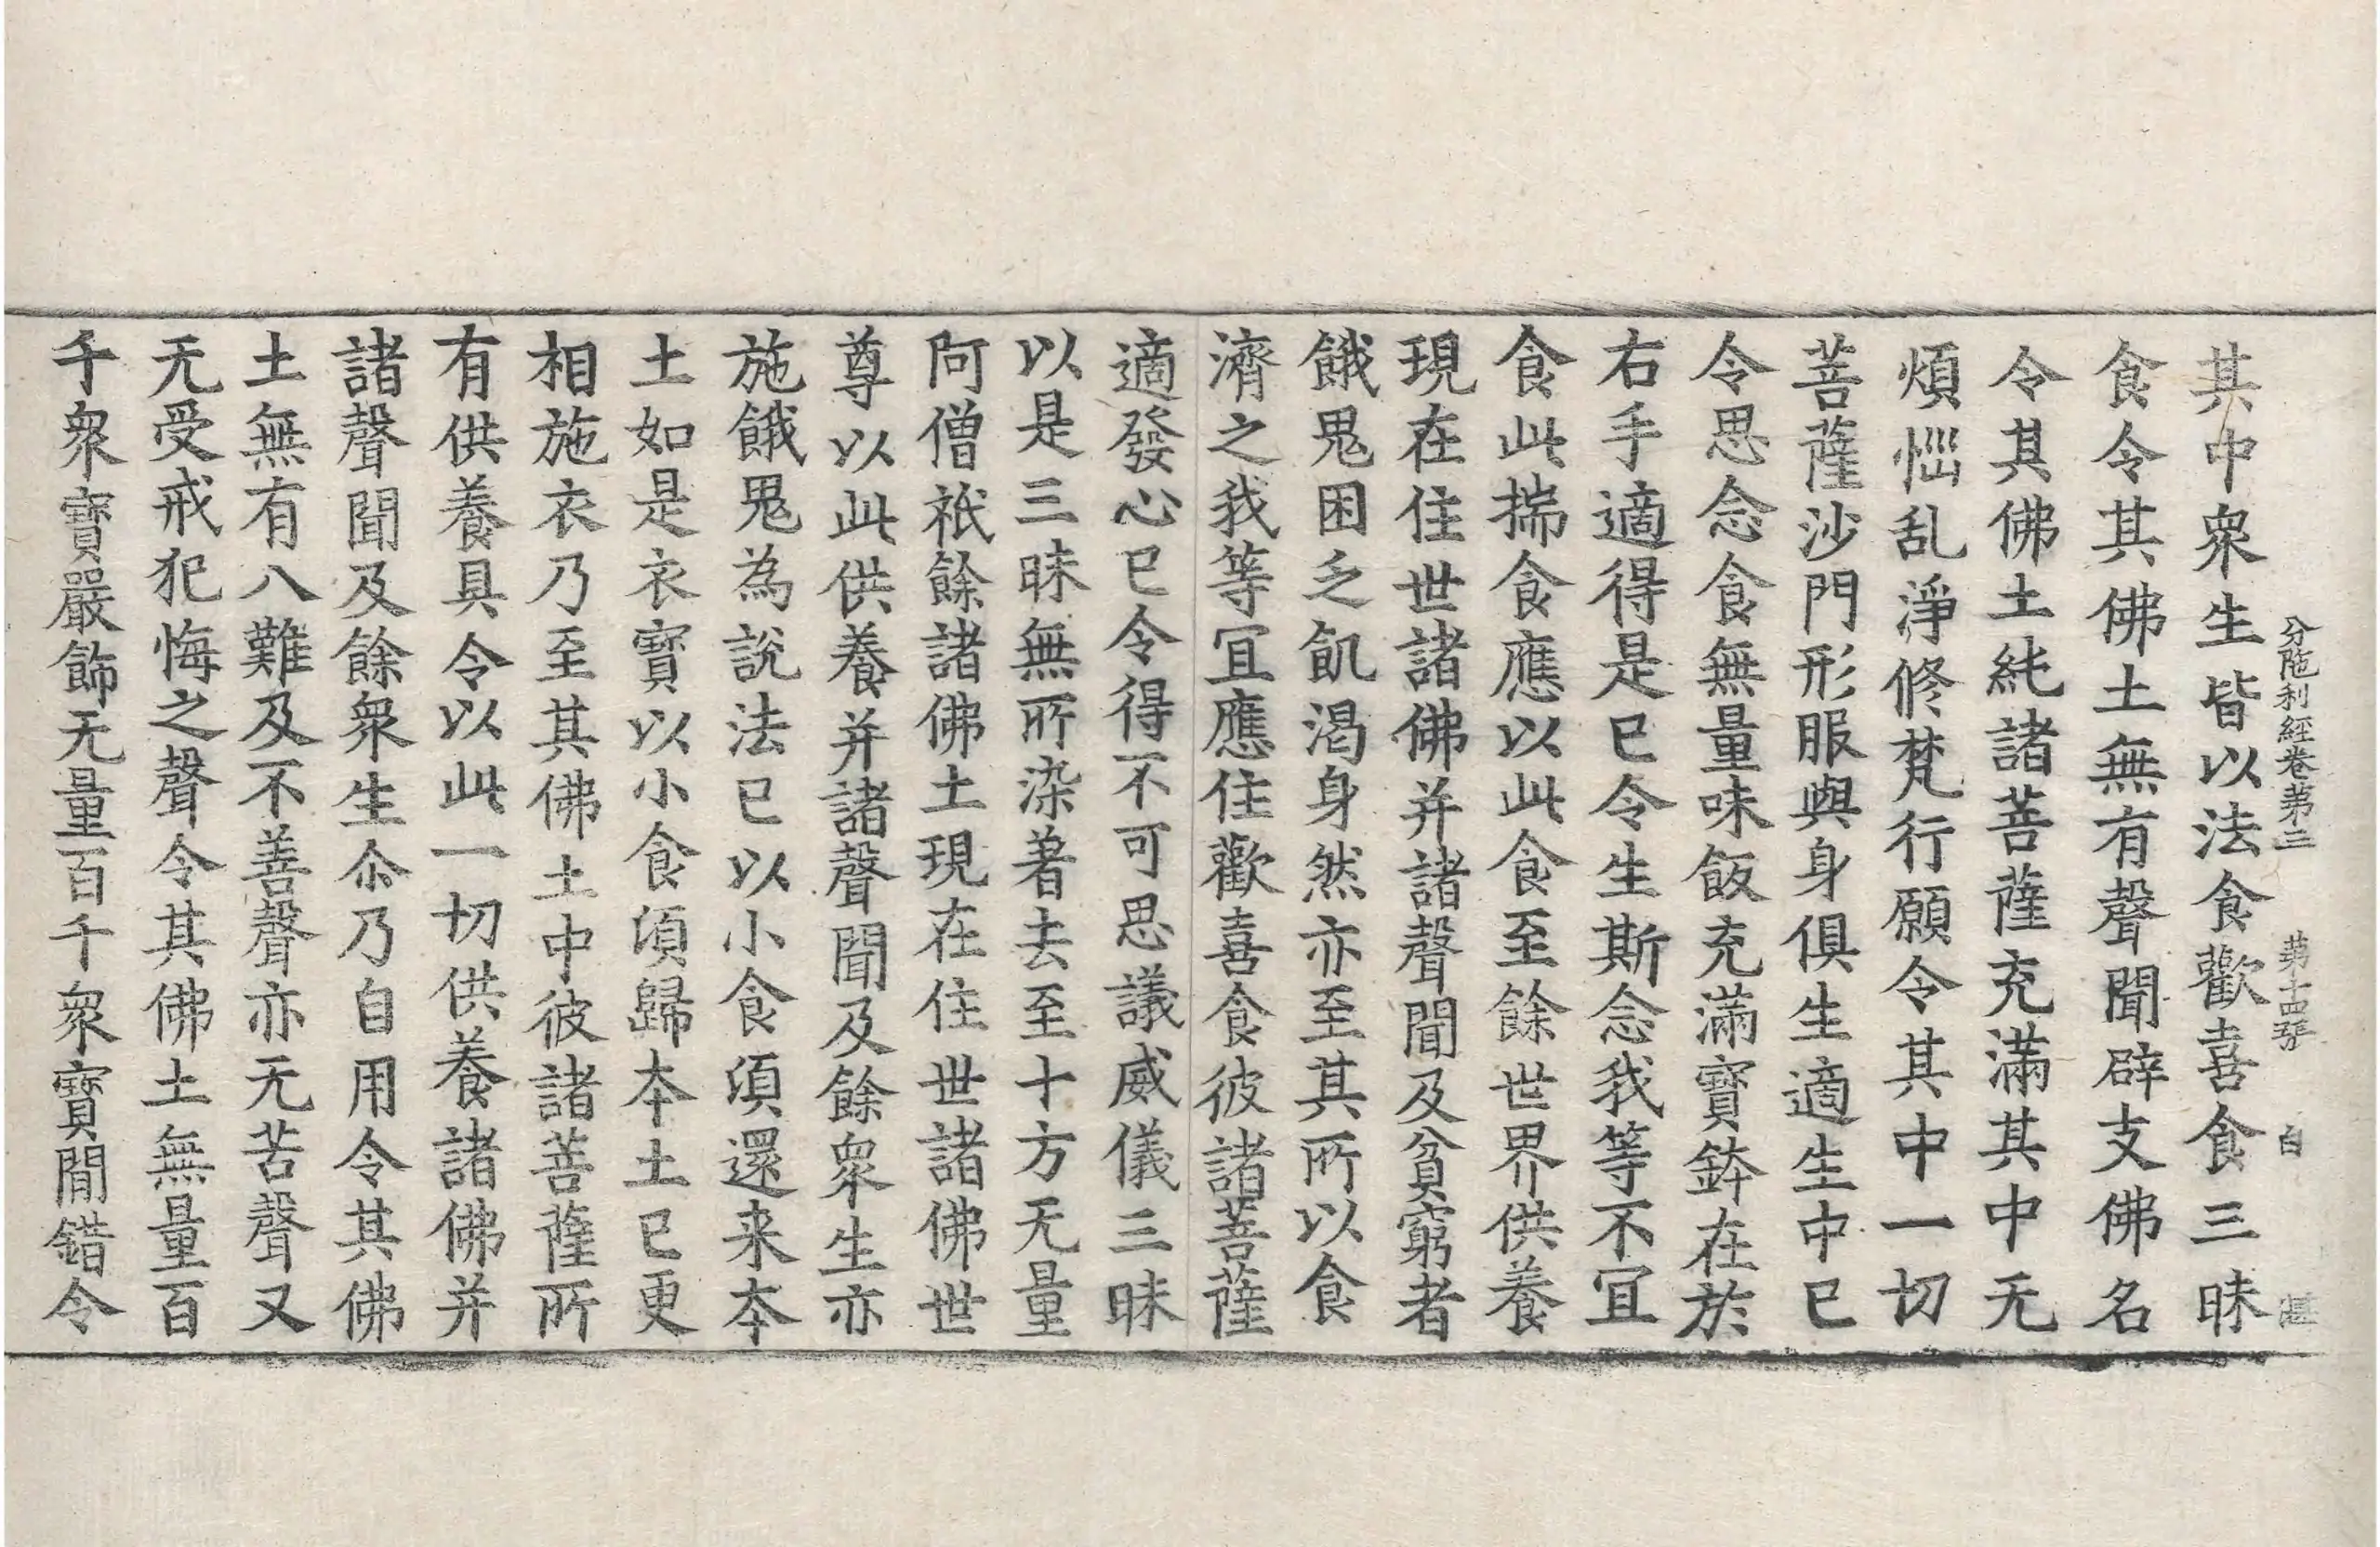 分陁利經卷第三　第十四張　白
其中衆生皆以法食歡喜食三昧
食令其佛土無有聲聞辟支佛名
令其佛土純諸菩薩充滿其中无
煩惱乱淨修梵行願令其中一切
菩薩沙門形服與身俱生適生中已
令思念食無量味飯充滿寶鉢在於
右手適得是已令生斯念我等不冝
食此揣食應以此食至餘世界供養
現在住世諸佛并諸聲聞及貧窮者
餓鬼困乏飢渴身然亦至其所以食
濟之我等冝應住歡喜食彼諸菩薩
適發心已令得不可思議威儀三昧
以是三昧無所染著去至十方无量
阿僧祇餘諸佛土現在住世諸佛世
尊以此供養并諸聲聞及餘衆生亦
施餓鬼為說法已以小食湏還来本
土如是衣寶以小食湏歸本土已更
相施衣乃至其佛土中彼諸菩薩所
有供養具令以此一切供養諸佛并
諸聲聞及餘衆生尒乃自用令其佛
土無有八難及不善聲亦无苦聲又
无受戒犯悔之聲令其佛土無量百
千衆寶嚴飾无量百千衆寶間錯令